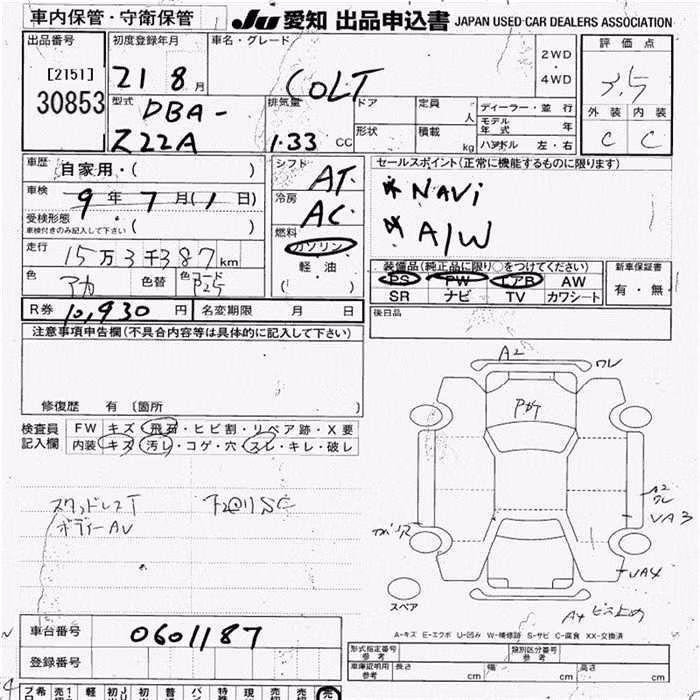 車内保管・守衛保管
JU 愛知 出品申込書 JAPAN USED CAR DEALERS ASSOCIATION
出品番号 初度登録年月 車名・グレード 2WD 評価点
[2151] 21 8月 COLT ・ 4WD 3.5
30853 型式 DBA- 排気量 ドア 定員 人 ディーラー・並 行 外装 内装
Z22A 1.33 CC 形状 積載 kg モデル年式 年 C C
ハンドル 左・右
車歴 自家用・( ) シフト AT セールスポイント(正常に機能するものに限ります)
車検 9年 7月(1日) 冷房 AC *NAVi
受検形態 *A/W
車検付きのみ記入して下さい ( ) 燃料 ガソリン
走行 15万3千387km 軽 油 装備品(純正品に限り○をつけてください) 新車保証書
色 アカ 色替 色コード P25 ( ) PS PW エアB AW 有・無
SR ナビ TV カワシート
R券 10,930円 名変期限 月 日 後日品
注意事項申告欄(不具合内容等は具体的に記入して下さい)
A2 ワレ
修復歴 有 〔箇所 〕
検査員 FW キズ・飛石・ヒビ割・リペア跡・X要
記入欄 内装 キズ・汚レ・コゲ・穴・スレ・キレ・破レ
A2
ワレ
スタッドレスT VA3
ボディーAV
VA4
スペア
車台番号 0601187
A-キズ E-エクボ U-凹み W-補修跡 S-サビ C-腐食 XX-交換済
登録番号 形式指定番号 参考 類別区分番号 参考
車庫証明用 参考 長さ cm 幅 cm 高さ cm